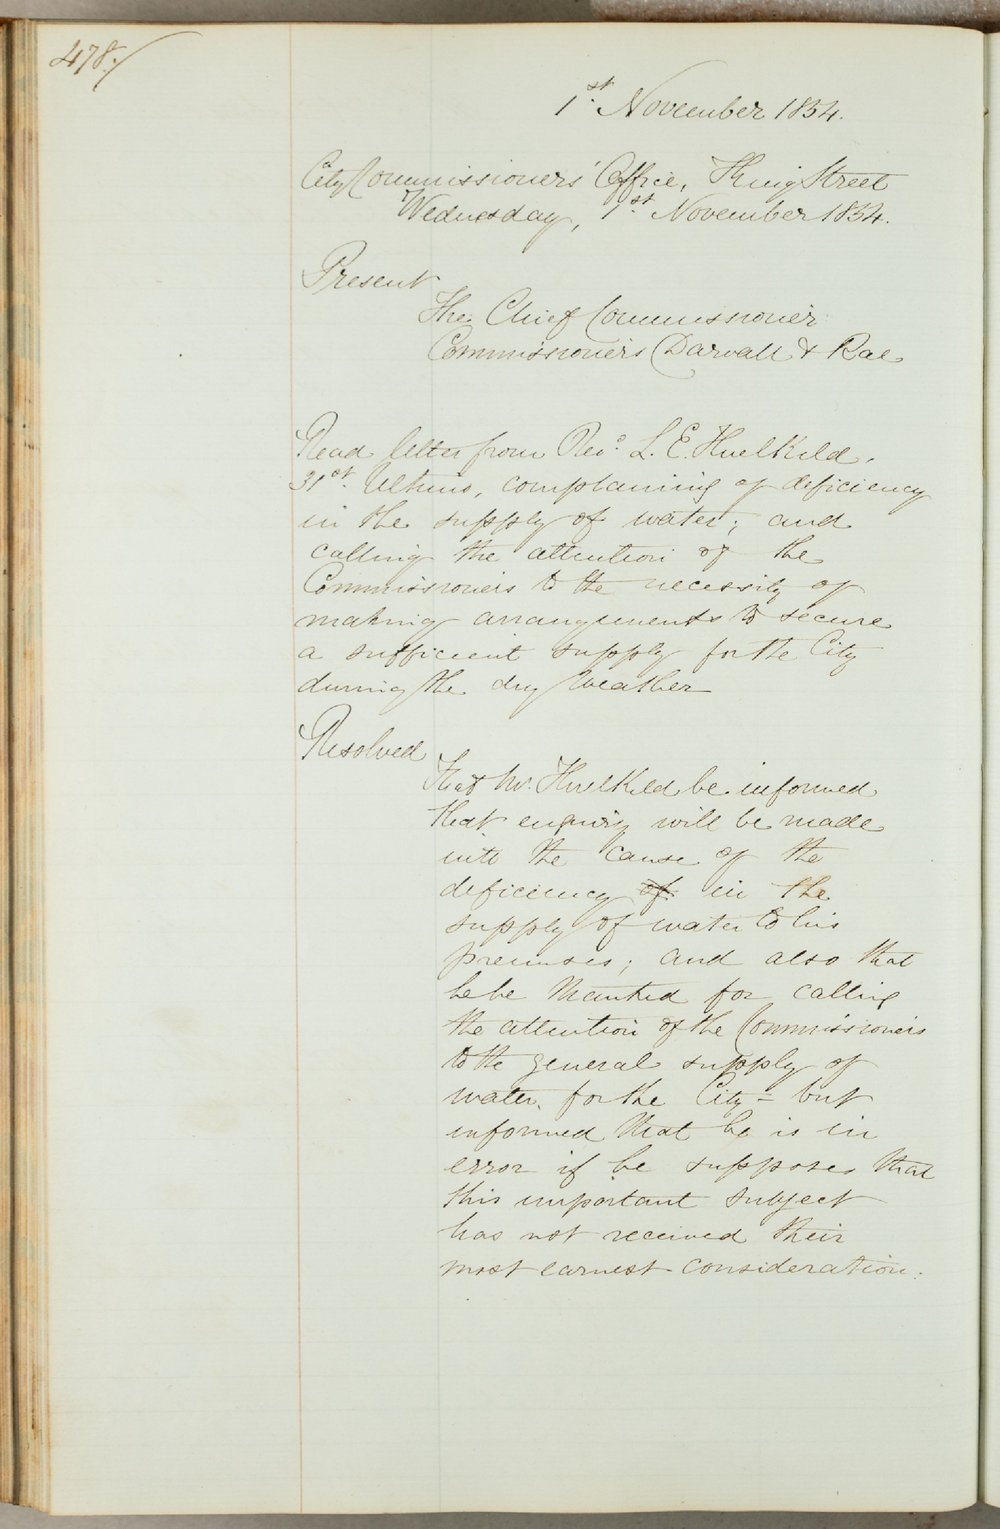 478.
1st. November 1854.
City Commissioners' Office, King Street
Wednesday, 1st. November 1854.
Present
The Chief Commissioner
Commissioners Darvall & Rae
Read letter from Revd. L. E. Threlkeld,
31st. Ultimo, complaining of deficiency
in the supply of water; and
calling the attention of the
Commissioners to the necessity of
making arrangements to secure
a sufficient supply for the City
during the dry Weather
Resolved
That Mr. Threlkeld be informed
that enquiry will be made
into the cause of the
deficiency of in the
supply of water to his
premises; and also that
he be thanked for calling
the attention of the Commissioners
to the general supply of
water for the City = but
informed that he is in
error if he supposes that
this important subject
has not received their
most earnest consideration.